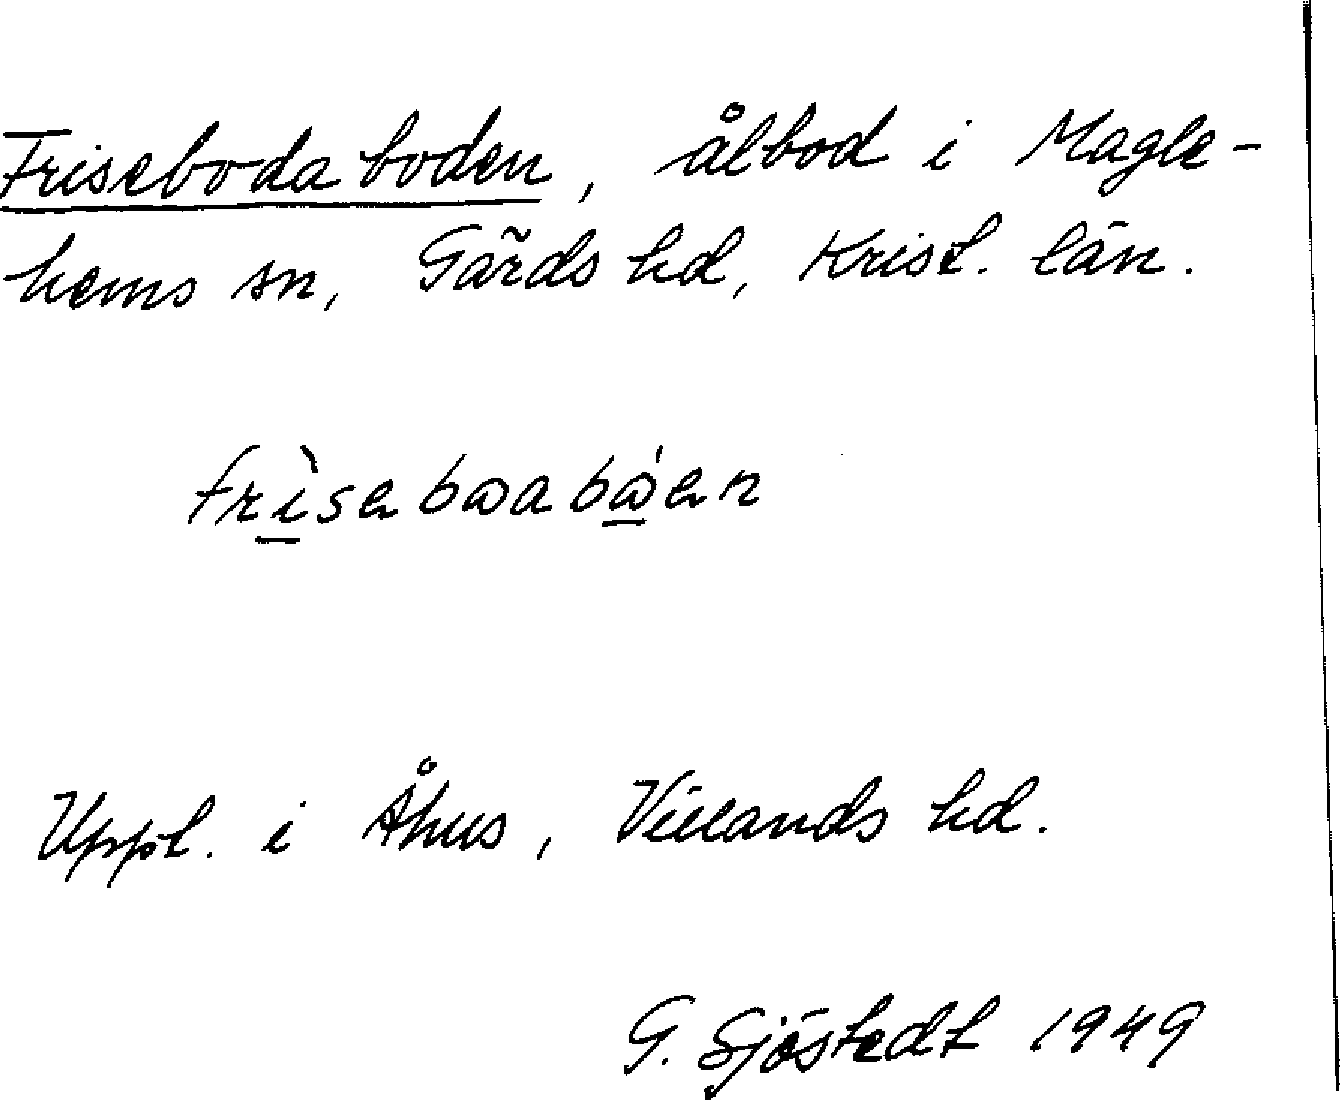 Friseboda boden, ålbod i Magle-
hems sn, Gärds hd, Krist. län.
frìsebωabώen
Uppt. i Åhus, Villands hd.
G. Sjöstedt 1949